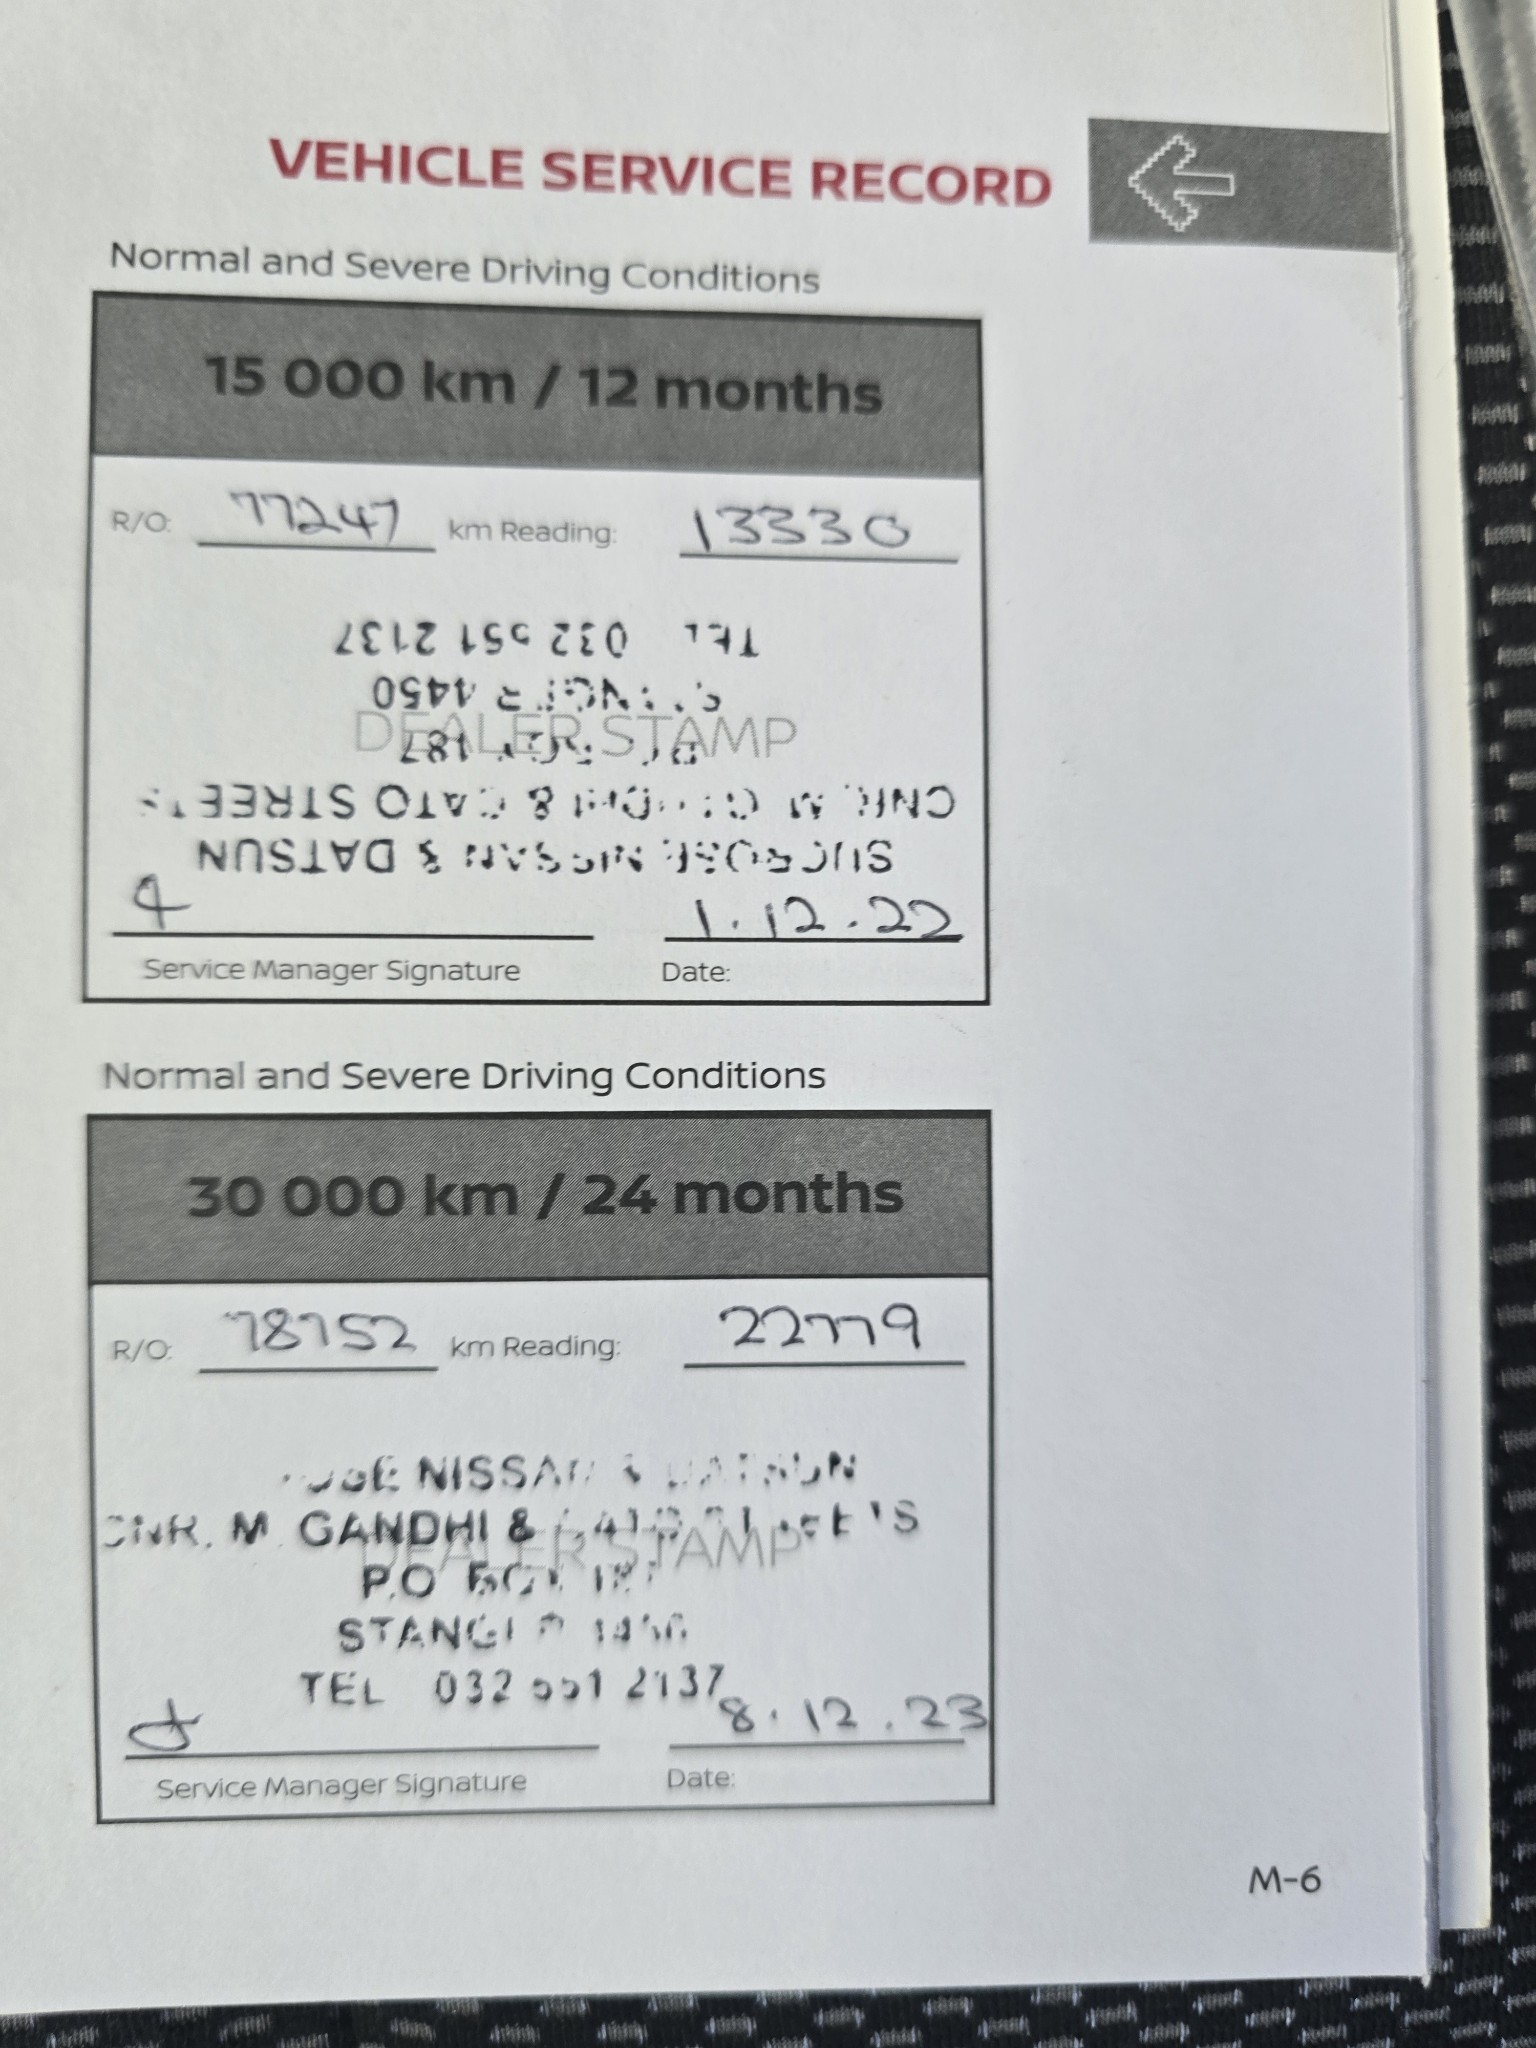 VEHICLE SERVICE RECORD
Normal and Severe Driving Conditions
15 000 km / 12 months
R/O: 77247 km Reading: 13330
SUCROSE NISSAN & DATSUN
CNR. M. GANDHI & CATO STREET'S
187
4450
TEL 032 551 2137
DEALER STAMP
1.12.22
Service Manager Signature Date:
Normal and Severe Driving Conditions
30 000 km / 24 months
R/O: 78752 km Reading: 22779
NISSAN & DATSUN
CNR. M. GANDHI &
P.O BOX 187
DEALER STAMP
STANGER
TEL 032 551 2137
8.12.23
Service Manager Signature Date:
M-6